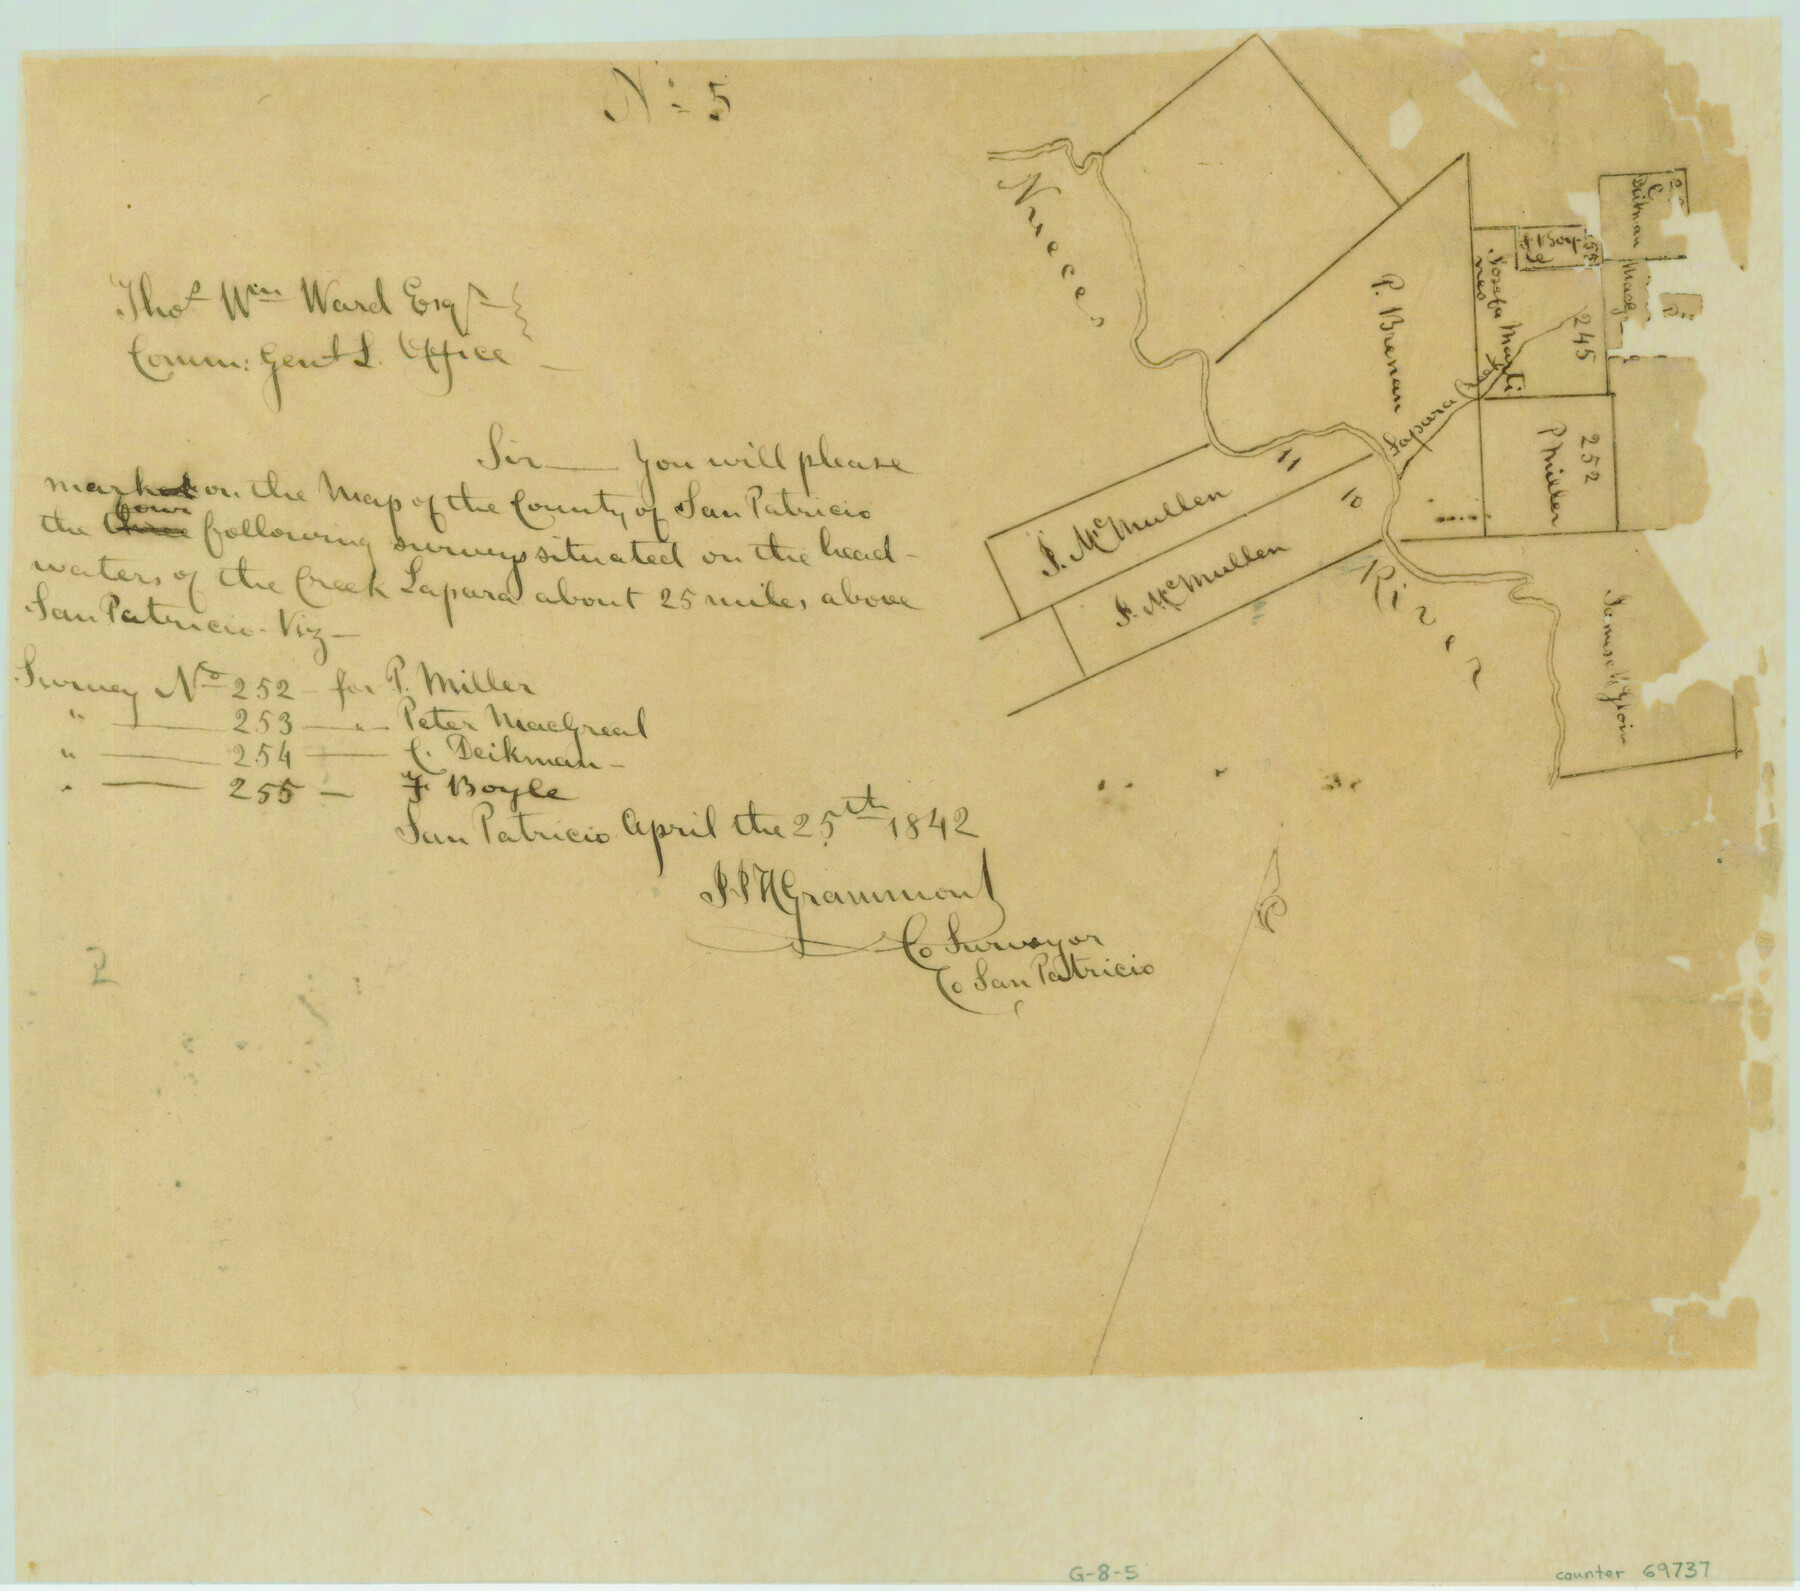 No 5
Thos Wm Ward Esqr
Comm: Genl L. Office
Sir — You will please
mark on the Map of the County of San Patricio
the four following surveys situated on the head-
waters of the Creek Lapara about 25 miles above
San Patricio. Viz —
Survey No 252 — for P. Miller
" — 253 — " — Peter MacGreal
" — 254 — C. Deikman —
" — 255 — F Boyle
San Patricio April the 25th 1842
Grammont
Co Surveyor
Co San Patricio
2
Nueces
River
P. Brenan
Josefa Marti
nes
F Boy
le
C
Deikman
245
Lapara
252
P Miller
11
J. McMullen
10
J. McMullen
G-8-5
counter 69737